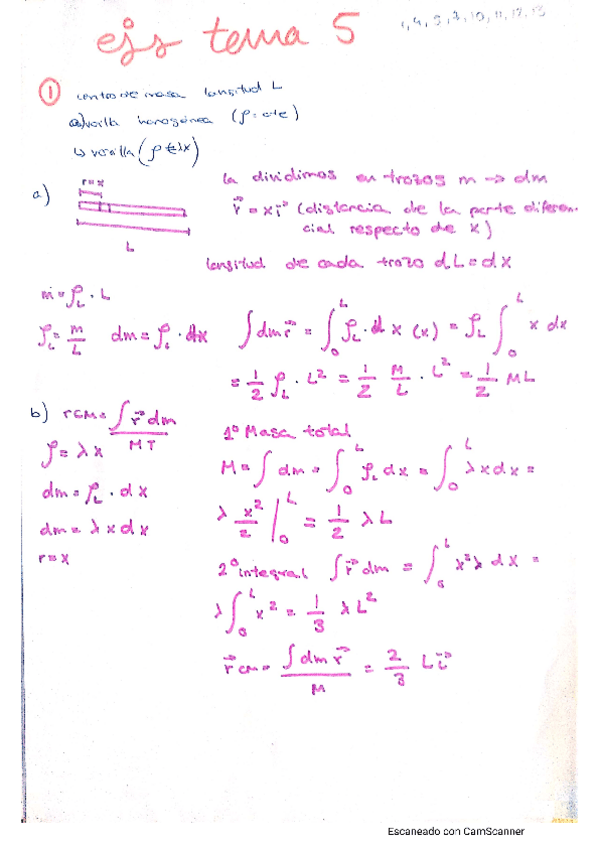 ejs tema 5
1, 4, 5, 7, 10, 11, 12, 13
① centro de masa longitud L
a) varilla homogénea (ρ = cte)
b) varilla (ρ = λx)
a)
r=x
L
la dividimos en trozos m → dm
r⃗ = x i⃗ (distancia de la parte diferen-
cial respecto de x)
longitud de cada trozo dL = dx
m = ρL · L
ρL = m/L dm = ρL · dx ∫dm r⃗ = ∫₀ᴸ ρL · dx (x) = ρL ∫₀ᴸ x dx
= 1/2 ρL · L² = 1/2 M/L · L² = 1/2 ML
b) rCM = ∫ r⃗ dm / MT
ρ = λx
dm = ρL · dx
dm = λxdx
r = x
1º Masa total
M = ∫ dm = ∫₀ᴸ ρL dx = ∫₀ᴸ λxdx =
λ x²/2 |₀ᴸ = 1/2 λL
2º integral ∫ r⃗ dm = ∫₀ᴸ x²λ dx =
λ ∫₀ᴸ x² = 1/3 λL²
r⃗CM = ∫ dm r⃗ / M = 2/3 L i⃗
Escaneado con CamScanner